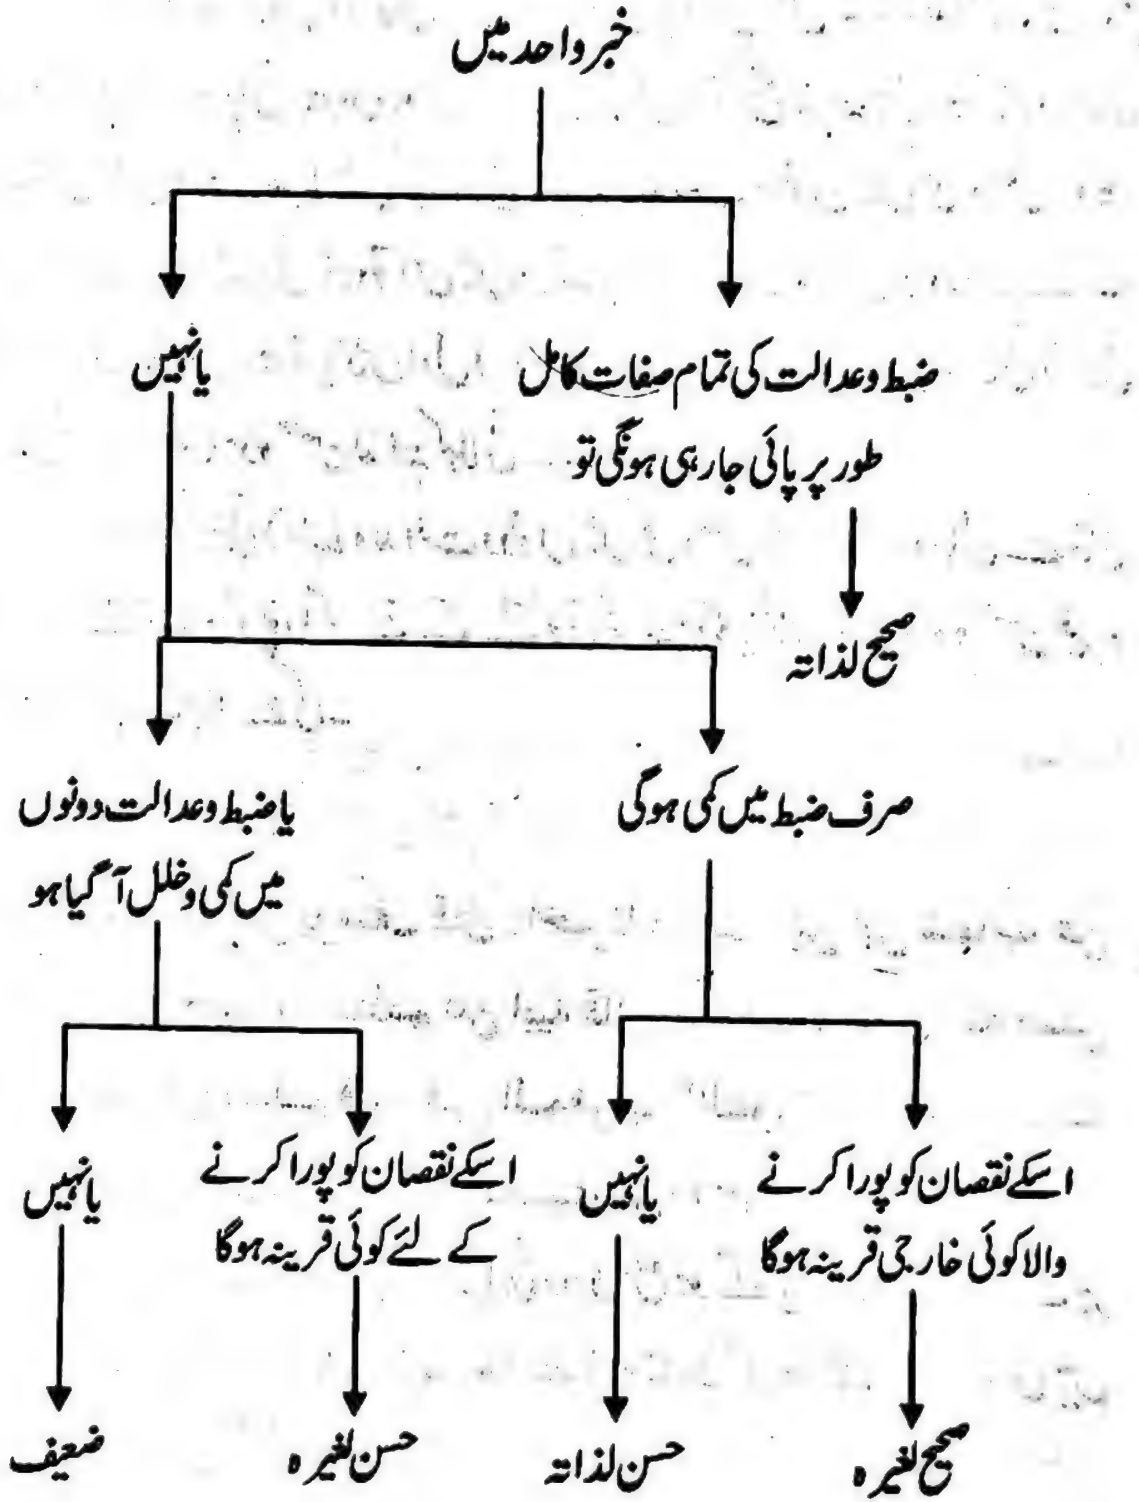 خبر واحد میں
ضبط و عدالت کی تمام صفات کامل
طور پر پائی جا رہی ہونگی تو
یا نہیں
صحیح لذاتہ
صرف ضبط میں کمی ہوگی
یا ضبط و عدالت دونوں
میں کمی و خلل آ گیا ہو
اسکے نقصان کو پورا کرنے
والا کوئی خارجی قرینہ ہوگا
یا نہیں
اسکے نقصان کو پورا کرنے
کے لئے کوئی قرینہ ہوگا
یا نہیں
صحیح لغیرہ
حسن لذاتہ
حسن لغیرہ
ضعیف